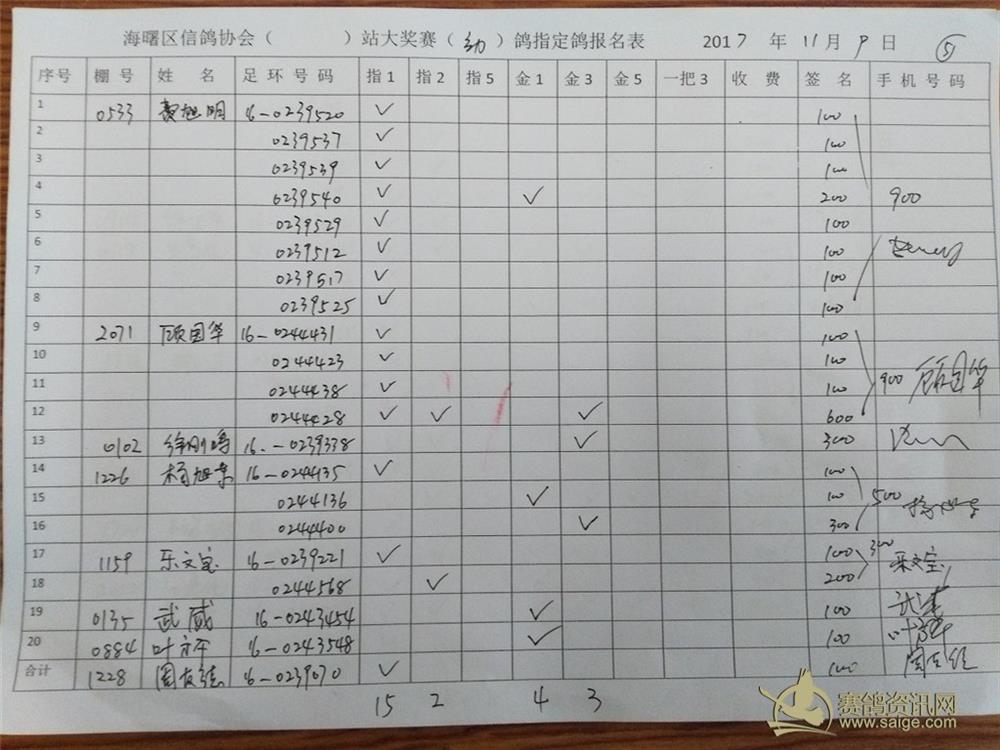 海曙区信鸽协会（ ）站大奖赛（幼）鸽指定鸽报名表 2017 年 11月 9 日 ⑤
序号 棚号 姓 名 足环号码 指1 指2 指5 金1 金3 金5 一把3 收费 签名 手机号码
1 0533 旭明 16-0239520 ✓ 100
2 0239537 ✓ 100
3 0239539 ✓ 100
4 0239540 ✓ ✓ 200 900
5 0239529 ✓ 100
6 0239512 ✓ 100
7 0239517 ✓ 100
8 0239525 ✓ 100
9 2071 顾国华 16-0244431 ✓ 100
10 0244423 ✓ 100
11 0244438 ✓ 100 900 顾国华
12 0244428 ✓ ✓ ✓ 600
13 0102 徐刚 16-0239338 ✓ 300
14 1226 杨旭东 16-0244135 ✓ 100
15 0244136 ✓ 100 500
16 0244400 ✓ 300
17 1159 乐文宝 16-0239221 ✓ 100 300 乐文宝
18 0244568 ✓ 200
19 0135 武威 16-0243454 ✓ 100
20 0884 叶 16-0243548 ✓ 100
合计 1228 周友 16-0239070 ✓ 100
15 2 4 3
赛鸽资讯网
www.saige.com